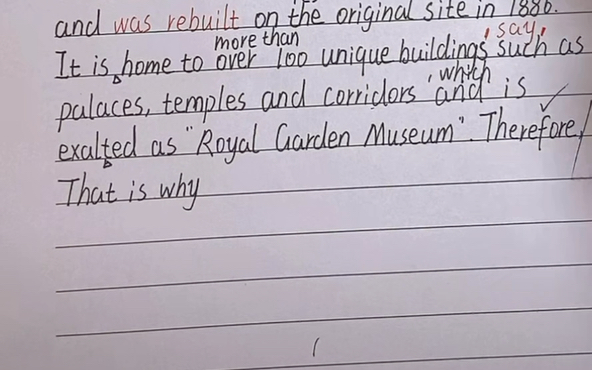 and was rebuilt on the original site in 1886.
more than , say,
It is home to over 100 unique buildings such as
, which
palaces, temples and corridors and is
exalted as "Royal Garden Museum". Therefore,
That is why